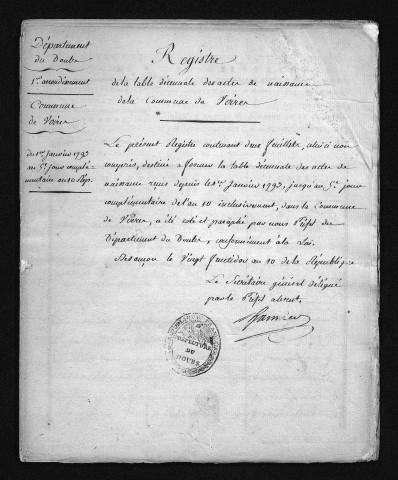 Département
du Doubs
1er arrondissement
Commune
de Voires
du 1er Janvier 1793
au 5e jour complé-
mentaire an 10 Rép.
Registre
de la table décennale des actes de naissance
de la Commune de Voires
Le présent Registre contenant deux feuillets, celui-ci non
compris, destiné à former la table décennale des actes de
naissance reçus depuis le 1er Janvier 1793, jusqu'au 5e jour
complémentaire de l'an 10 inclusivement, dans la commune
de Voires, a été coté et paraphé par nous Préfet du
Département du Doubs, conformément à la Loi.
Besançon le Vingt fructidor an 10 de la République
Le Secrétaire général délégué
par le Préfet absent.
PRÉFECTURE
DU
DOUBS